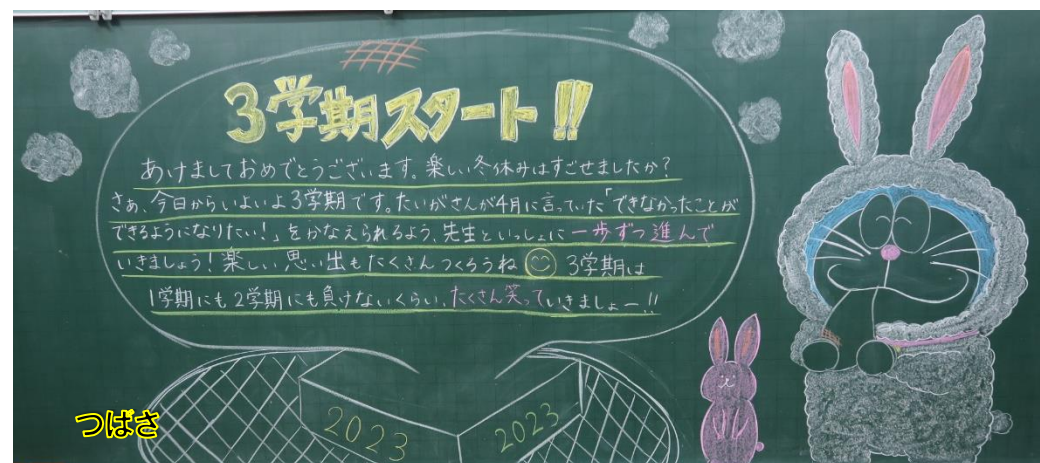 3学期スタート!!
あけましておめでとうございます。楽しい冬休みはすごせましたか?
さぁ、今日からいよいよ3学期です。たいがさんが4月に言っていた「できなかったことが
できるようになりたい!」をかなえられるよう、先生といっしょに一歩ずつ進んで
いきましょう!楽しい思い出もたくさんつくろうね 3学期は
1学期にも2学期にも負けないくらい、たくさん笑っていきましょー!!
2023
2023
つばさ